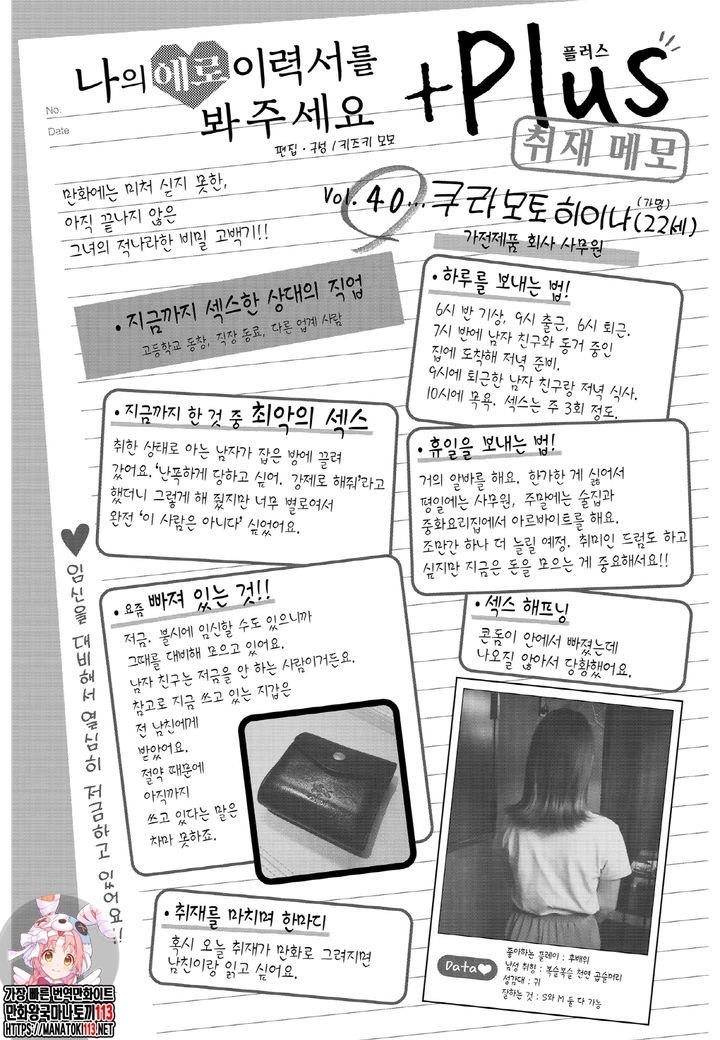 나의 에로 이력서를
봐주세요
+Plus
플러스
취재 메모
편집·구성 / 키즈키 모모
No.
Date
만화에는 미처 싣지 못한,
아직 끝나지 않은
그녀의 적나라한 비밀 고백기!!
Vol. 40... 쿠라모토 히이나 (22세)
(가명)
가전제품 회사 사무원
·지금까지 섹스한 상대의 직업
고등학교 동창, 직장 동료, 다른 업계 사람
·하루를 보내는 법!
6시 반 기상, 9시 출근, 6시 퇴근.
7시 반에 남자 친구와 동거 중인
집에 도착해 저녁 준비.
9시에 퇴근한 남자 친구랑 저녁 식사.
10시에 목욕. 섹스는 주 3회 정도.
·지금까지 한 것 중 최악의 섹스
취한 상태로 아는 남자가 잡은 방에 끌려
갔어요. '난폭하게 당하고 싶어. 강제로 해줘'라고
했더니 그렇게 해 줬지만 너무 별로여서
완전 '이 사람은 아니다' 싶었어요.
·휴일을 보내는 법!
거의 알바를 해요. 한가한 게 싫어서
평일에는 사무원, 주말에는 술집과
중화요리집에서 아르바이트를 해요.
조만간 하나 더 늘릴 예정. 취미인 드럼도 하고
싶지만 지금은 돈을 모으는 게 중요해서요!!
·요즘 빠져 있는 것!!
저금. 불시에 임신할 수도 있으니까
그때를 대비해 모으고 있어요.
남자 친구는 저금을 안 하는 사람이거든요.
참고로 지금 쓰고 있는 지갑은
전 남친에게
받았어요.
절약 때문에
아직까지
쓰고 있다는 말은
차마 못하죠.
·섹스 해프닝
콘돔이 안에서 빠졌는데
나오질 않아서 당황했어요.
임신을 대비해서 열심히 저금하고 있어요!!
·취재를 마치며 한마디
혹시 오늘 취재가 만화로 그려지면
남친이랑 읽고 싶어요.
Data
좋아하는 플레이 : 후배위
남성 취향 : 복슬복슬 천연 곱슬머리
성감대 : 귀
잘하는 것 : S와 M 둘 다 가능
가장 빠른 번역만화이트
만화왕국마나토끼113
HTTPS://MANATOKI113.NET